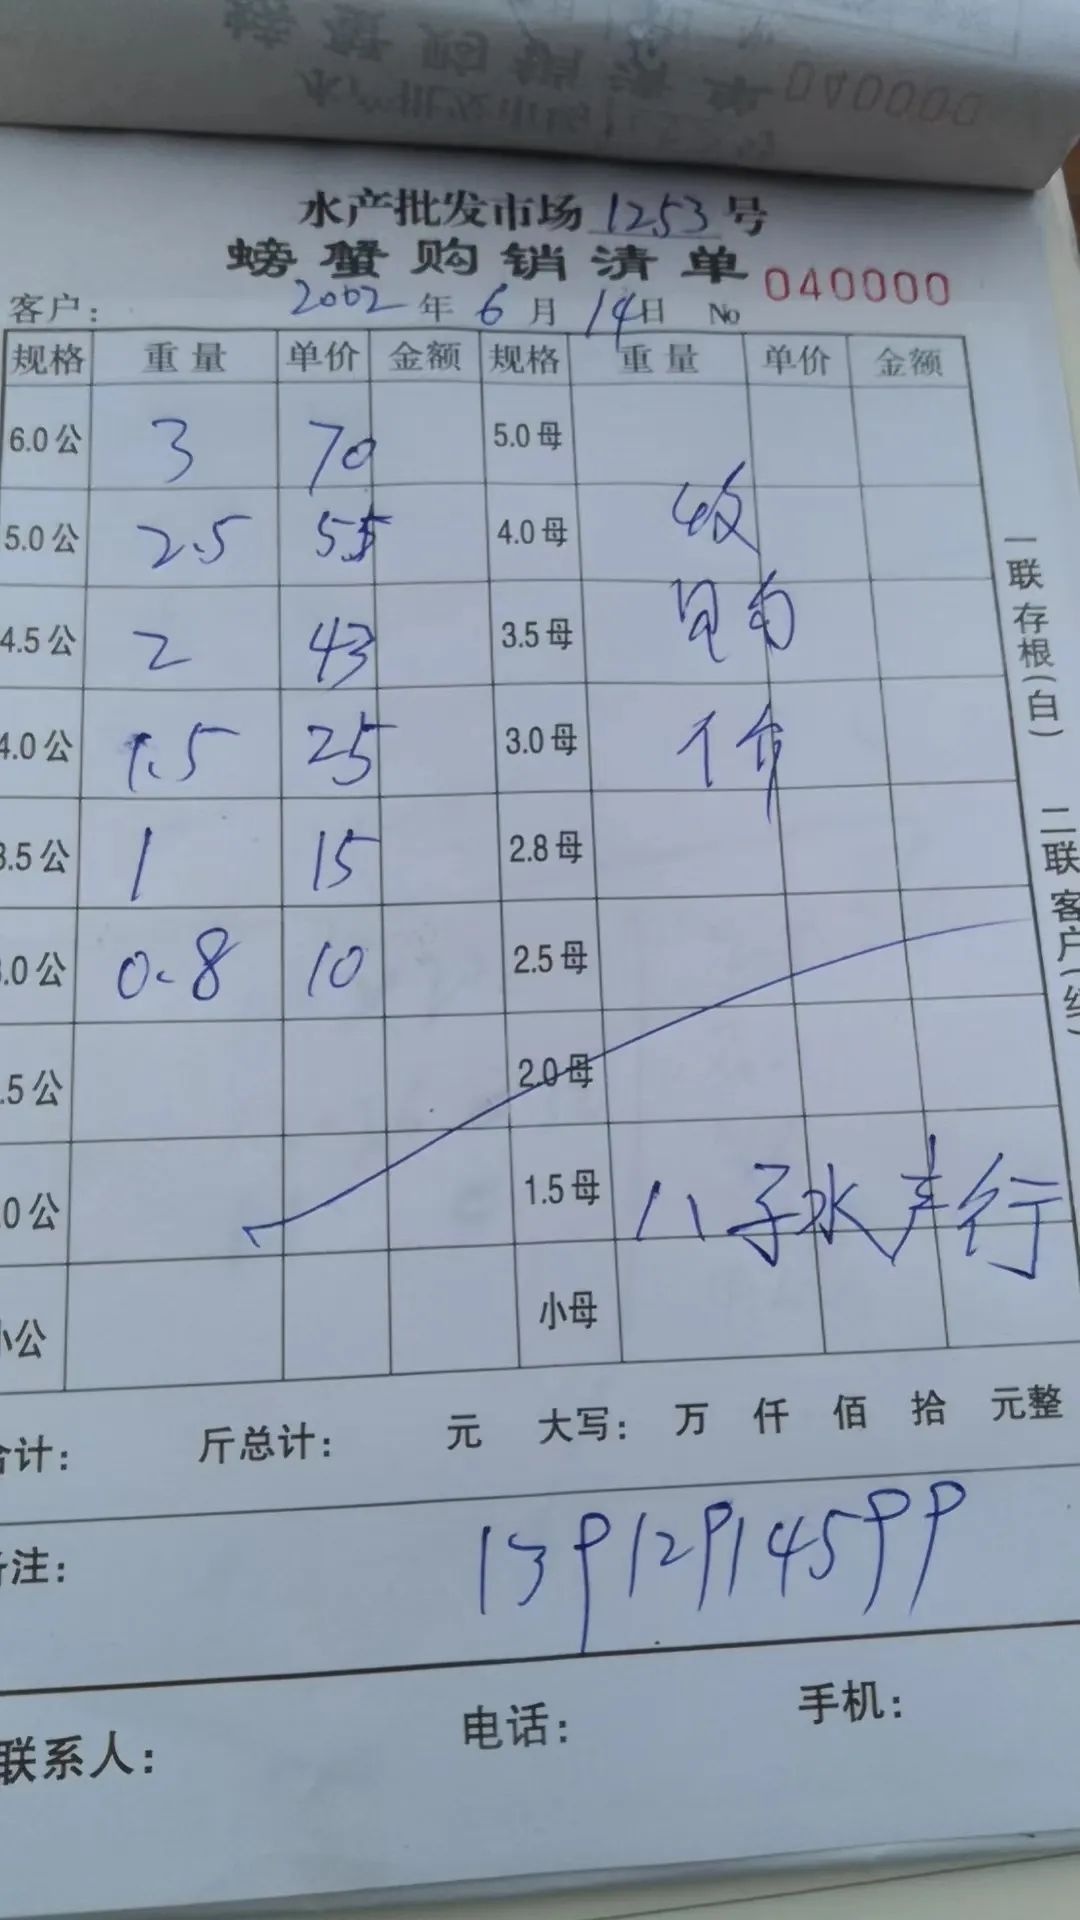 水产批发市场 1253 号
螃蟹购销清单 040000
客户: 2002 年 6 月 14 日 No
规格 重量 单价 金额 规格 重量 单价 金额
6.0公 3 70 5.0母
5.0公 2.5 55 4.0母 收
4.5公 2 43 3.5母
4.0公 1.5 25 3.0母 个
3.5公 1 15 2.8母
3.0公 0.8 10 2.5母
.5公 2.0母
.0公 1.5母 八子水产行
小公 小母
合计: 斤总计: 元 大写: 万 仟 佰 拾 元整
备注: 13912914599
联系人: 电话: 手机:
一联存根(白)
二联客户(红)